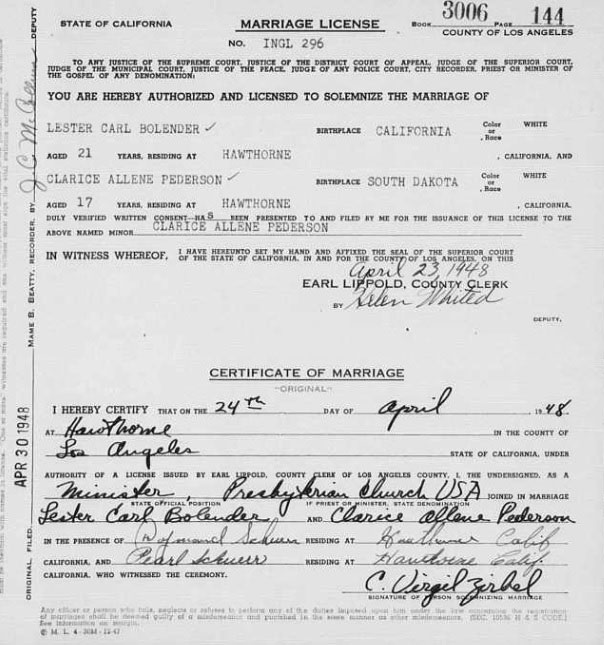 STATE OF CALIFORNIA
MARRIAGE LICENSE
BOOK 3006 PAGE 144
COUNTY OF LOS ANGELES
NO. INGL 296
TO ANY JUSTICE OF THE SUPREME COURT, JUSTICE OF THE DISTRICT COURT OF APPEAL, JUDGE OF THE SUPERIOR COURT,
JUDGE OF THE MUNICIPAL COURT, JUSTICE OF THE PEACE, JUDGE OF ANY POLICE COURT, CITY RECORDER, PRIEST OR MINISTER OF
THE GOSPEL OF ANY DENOMINATION:
YOU ARE HEREBY AUTHORIZED AND LICENSED TO SOLEMNIZE THE MARRIAGE OF
LESTER CARL BOLENDER ✓ BIRTHPLACE CALIFORNIA Color or Race WHITE
AGED 21 YEARS, RESIDING AT HAWTHORNE , CALIFORNIA, AND
CLARICE ALLENE PEDERSON ✓ BIRTHPLACE SOUTH DAKOTA Color or Race WHITE
AGED 17 YEARS, RESIDING AT HAWTHORNE , CALIFORNIA.
DULY VERIFIED WRITTEN CONSENT HAS BEEN PRESENTED TO AND FILED BY ME FOR THE ISSUANCE OF THIS LICENSE TO THE
ABOVE NAMED MINOR CLARICE ALLENE PEDERSON
IN WITNESS WHEREOF, I HAVE HEREUNTO SET MY HAND AND AFFIXED THE SEAL OF THE SUPERIOR COURT
OF THE STATE OF CALIFORNIA, IN AND FOR THE COUNTY OF LOS ANGELES, ON THIS
April 23, 1948
EARL LIPPOLD, COUNTY CLERK
BY Helen Whited
DEPUTY.
CERTIFICATE OF MARRIAGE
-ORIGINAL-
I HEREBY CERTIFY THAT ON THE 24th DAY OF April 1948.
AT Hawthorne IN THE COUNTY OF
Los Angeles STATE OF CALIFORNIA, UNDER
AUTHORITY OF A LICENSE ISSUED BY EARL LIPPOLD, COUNTY CLERK OF LOS ANGELES COUNTY, I, THE UNDERSIGNED, AS A
Minister, Presbyterian Church USA JOINED IN MARRIAGE
STATE OFFICIAL POSITION IF PRIEST OR MINISTER, STATE DENOMINATION
Lester Carl Bolender AND Clarice Allene Pederson
IN THE PRESENCE OF Schierr RESIDING AT Hawthorne Calif
CALIFORNIA, AND Pearl Schierr RESIDING AT Hawthorne Calif.
CALIFORNIA, WHO WITNESSED THE CEREMONY.
C. Virgil Zirbel
SIGNATURE OF PERSON SOLEMNIZING MARRIAGE
Any officer or person who fails, neglects or refuses to perform any of the duties imposed upon him under the law concerning the registration
of marriages shall be deemed guilty of a misdemeanor and punished in the same manner as other misdemeanors. (SEC. 10536 H & S CODE.)
See information on margin.
© M. L. 4-30M-12-47
ORIGINAL FILED APR 30 1948 MAME B. BEATTY, RECORDER, BY DEPUTY